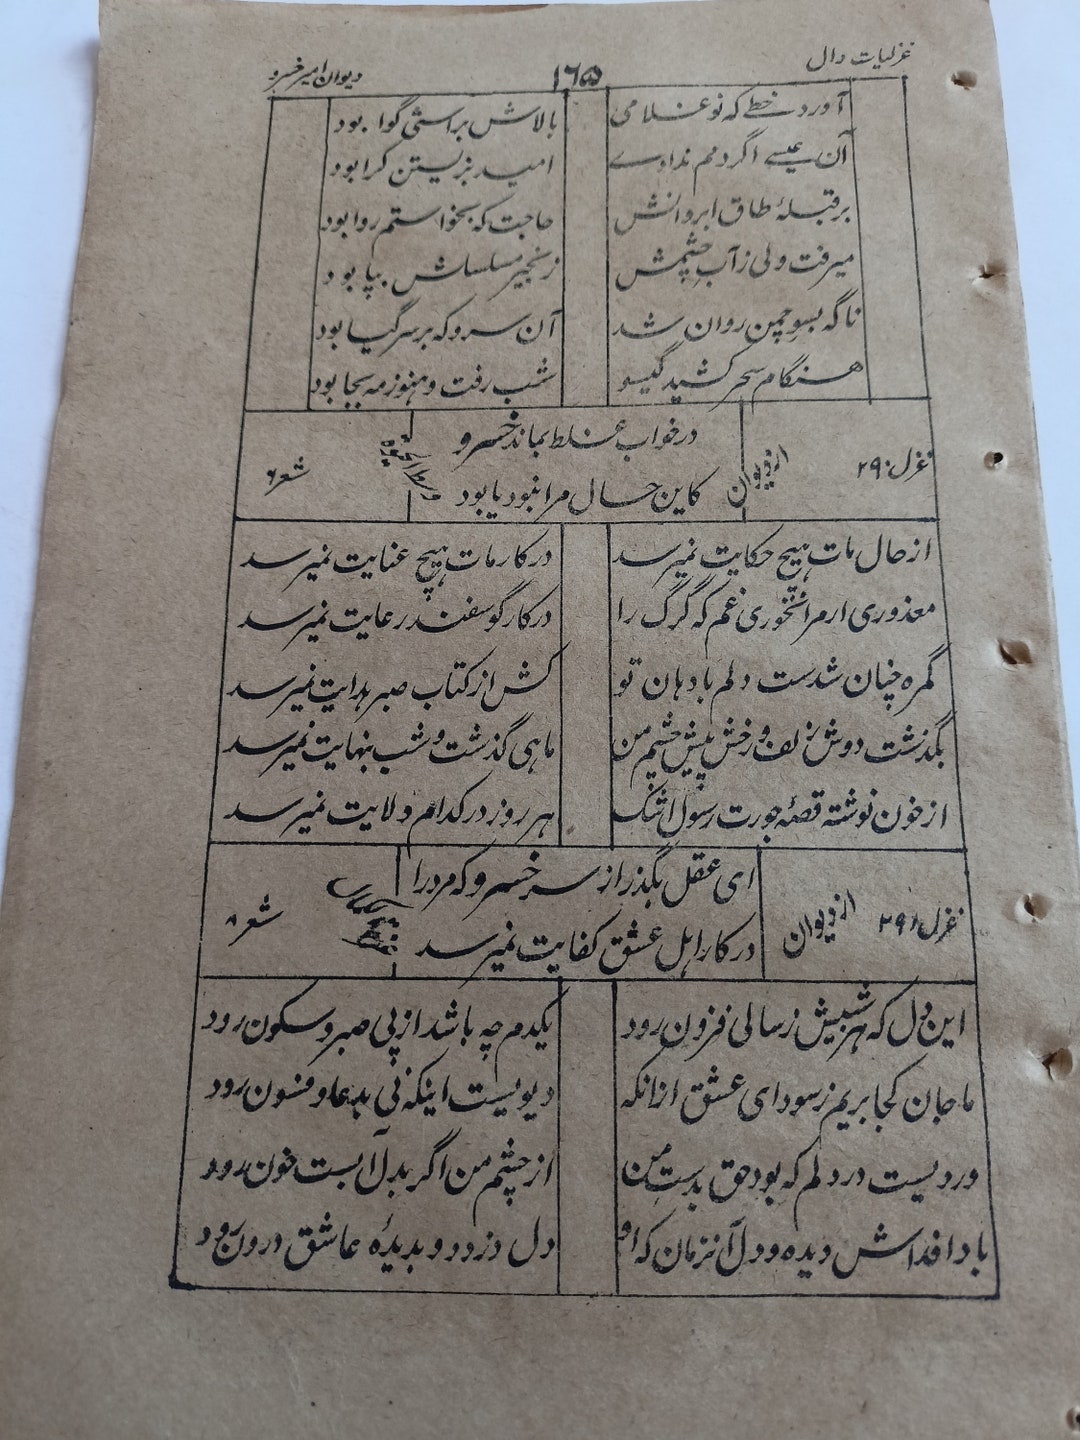 غزلیات دال ۱۶۵ دیوان امیر خسرو
آورد خطے که تو غلامی بالاش براستی گوا بود
آن عیسے اگر دمم ندادے امید بزیستن کرا بود
بر قبلهٔ طاق ابروانش حاجت که بخواستم روا بود
میرفت ولی ز آب چشمش زنجیر مسلسلش بپا بود
ناگه بسوچمن روان شد آن سرو که بر سر گیا بود
هنگام سحر کشید گیسو شب رفت و هنوز مه بجا بود
در خواب غلط بماند خسرو
کاین حال مرا نبود یا بود
غزل ۲۹۰ از دیوان شعر ۶
از حال مات هیچ حکایت نمیرسد در کار مات هیچ عنایت نمیرسد
معذوری ار مرا نخوری غم که گرگ را در کار گوسفند رعایت نمیرسد
گمره چنان شدست دلم با دهان تو کش از کتاب صبر هدایت نمیرسد
بگذشت دوش زلف و رخش پیش چشم من ماهی گذشت و شب بنهایت نمیرسد
از خون نوشته قصهٔ جورت رسول اشک هر روز در کدام ولایت نمیرسد
ای عقل بگذر از سر خسرو که مرد را
در کار اهل عشق کفایت نمیرسد
غزل ۲۹۱ از دیوان شعر ۸
این دل که هر شبیش ز سالی فزون رود یکدم چه باشد از پی صبر و سکون رود
ما جان کجا بریم ز سودای عشق ازانکه دیویست اینکه نی بدعا و فسون رود
دردیست در دلم که بود حق بدست من از چشم من اگر بدل آبست خون رود
بادا فداش دیده و دل آنزمان که او دل دزدد و بدیدهٔ عاشق درون رود